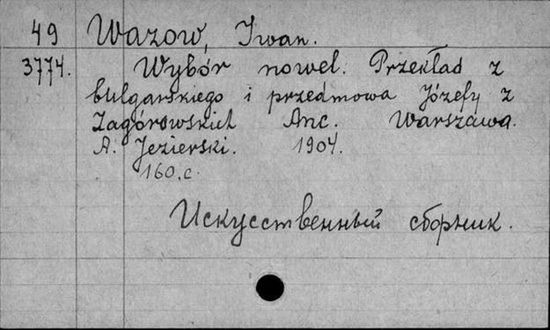 49 Wazow, Iwan.
3774. Wybór nowel. Przekład z
bulgarskiego i przedmowa Józefy z
Zagórowskich Anc. Warszawa.
A. Jezierski. 1904.
160 с.
Искусственный сборник.